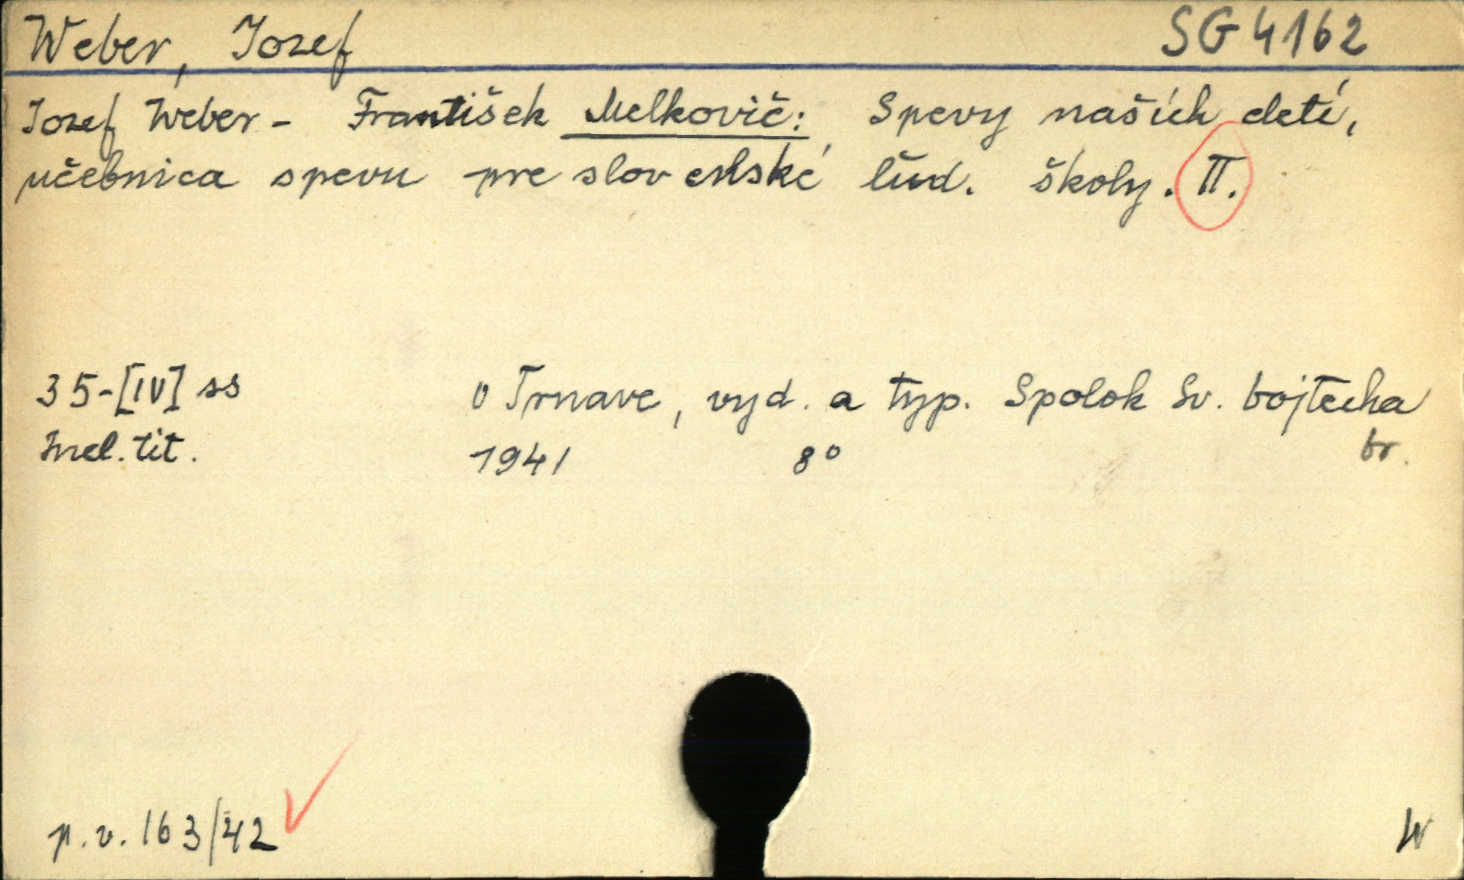 Weber, Jozef SG 4162
Jozef Weber - František Melkovič: Spevy našich detí,
učebnica spevu pre slovenské ľud. školy. II.
35-[IV] ss v Trnave, vyd. a typ. Spolok Sv. Vojtecha
mel. tit. 1941 8° br.
p.v. 163/42 W